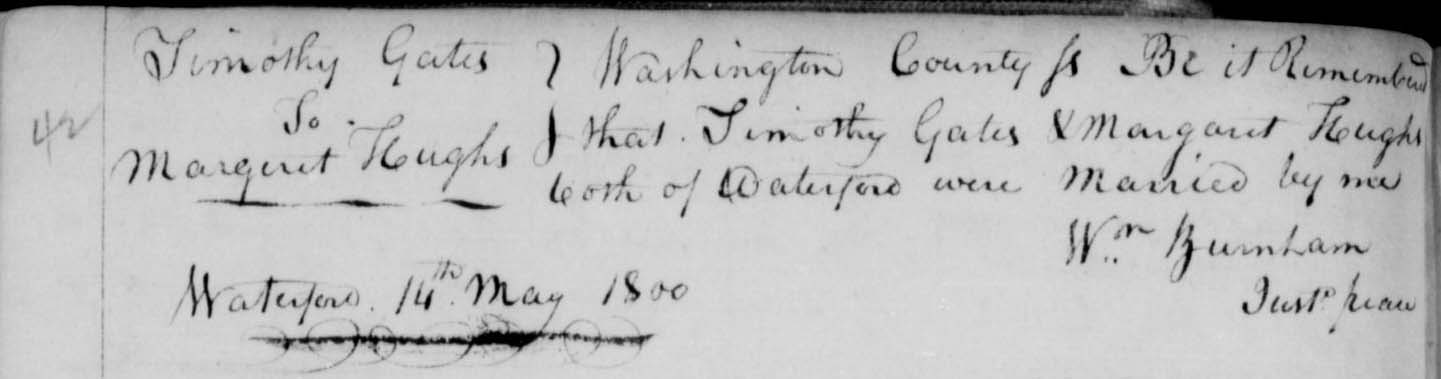 Timothy Gates } Washington County ss Be it Rememberd
To.
42
Margeret Hughs } that. Timothy Gates & Margaret Hughs
both of Waterford were Married by me
Wm Burnham
Waterford. 14th. May 1800
Just. peace